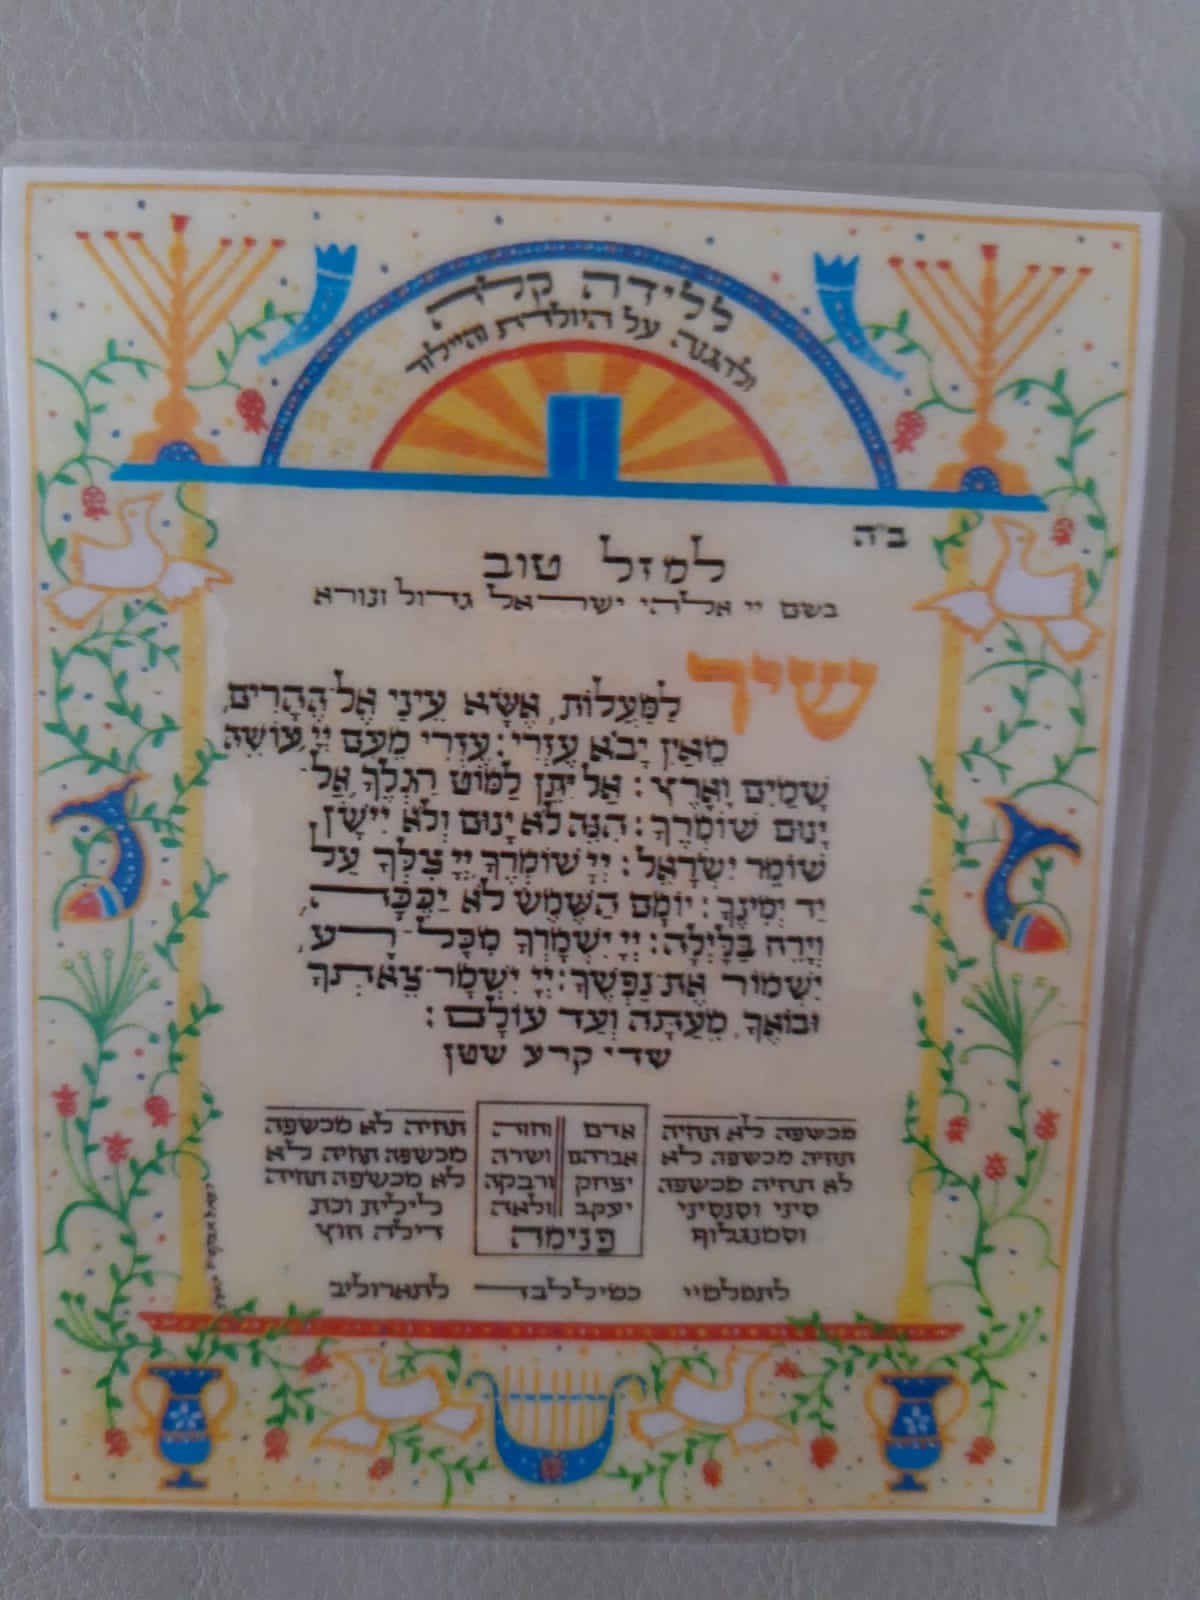 ללידה קלה
ולהגנה על היולדת והיילוד
ב״ה
למזל טוב
בשם יי אלהי ישראל גדול ונורא
שיר לַמַּעֲלוֹת, אֶשָּׂא עֵינַי אֶל הֶהָרִים,
מֵאַיִן יָבֹא עֶזְרִי: עֶזְרִי מֵעִם יְיָ, עוֹשֵׂה
שָׁמַיִם וָאָרֶץ: אַל יִתֵּן לַמּוֹט רַגְלֶךָ, אַל
יָנוּם שׁוֹמְרֶךָ: הִנֵּה לֹא יָנוּם וְלֹא יִישָׁן
שׁוֹמֵר יִשְׂרָאֵל: יְיָ שׁוֹמְרֶךָ יְיָ צִלְּךָ עַל
יַד יְמִינֶךָ: יוֹמָם הַשֶּׁמֶשׁ לֹא יַכֶּכָּה,
וְיָרֵחַ בַּלָּיְלָה: יְיָ יִשְׁמָרְךָ מִכָּל רָע,
יִשְׁמוֹר אֶת נַפְשֶׁךָ: יְיָ יִשְׁמָר צֵאתְךָ
וּבוֹאֶךָ, מֵעַתָּה וְעַד עוֹלָם:
שדי קרע שטן
מכשפה לא תחיה
תחיה מכשפה לא
לא תחיה מכשפה
סיני וסנסיני
וסמנגלוף
אדם וחוה
אברהם ושרה
יצחק ורבקה
יעקב ולאה
פנימה
תחיה לא מכשפה
מכשפה תחיה לא
לא מכשפה תחיה
לילית וכת
דילה חוץ
לתסלמיי כמיללבד לתארוליב